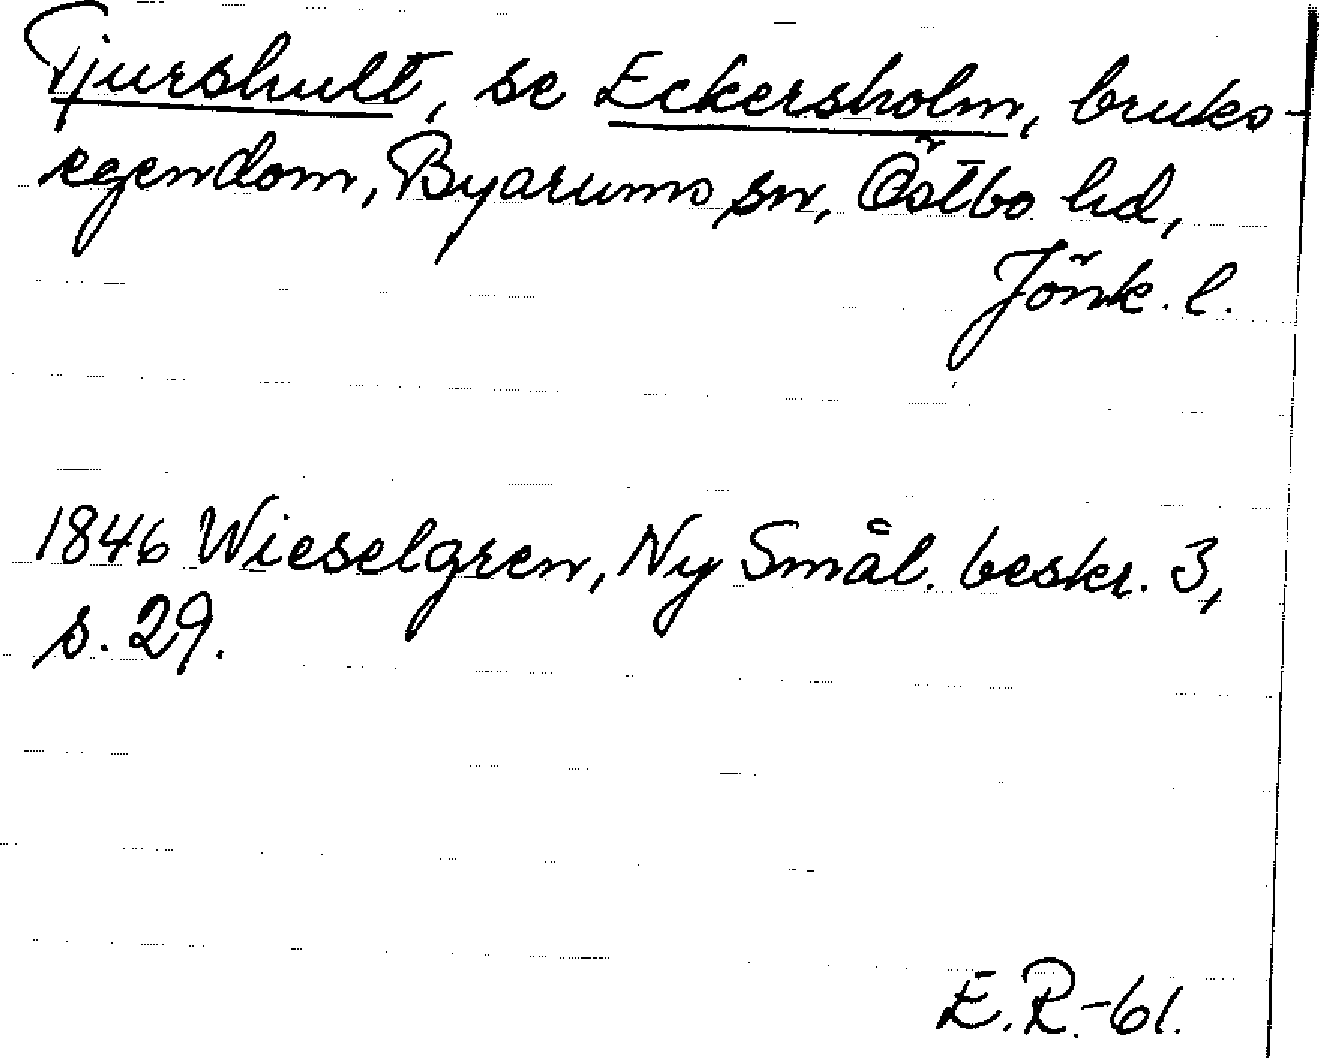 Tjurshult, se Eckersholm, bruks-
egendom, Byarums sn, Östbo hd,
Jönk. l.
1846 Wieselgren, Ny Smål. beskr. 3,
s. 29.
E.R.-61.